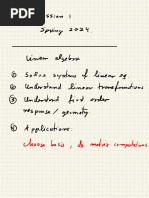 ession 1
Spring 2024.
Linear algebra
① Solve systems of linear eq.
② Understand linear transformations
③ Understand first order
response / geometry.
④ Applications:
choose basis, do matrix computations